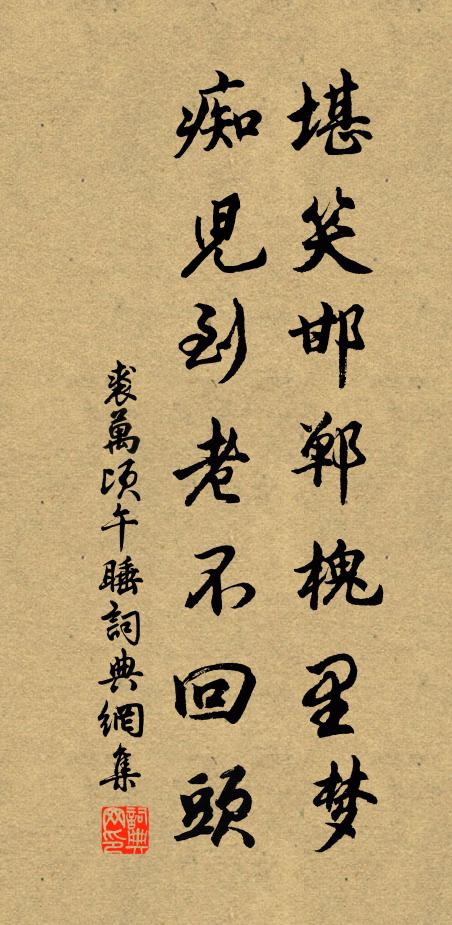 堪笑邯郸槐里梦
痴児到老不回頭
裘萬頃午睡詞典網集
詞典網印